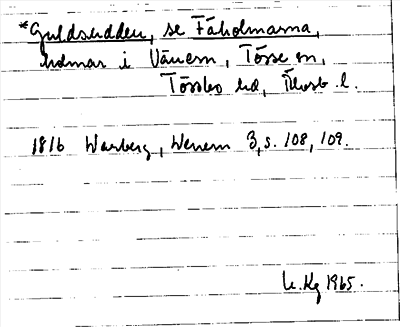 *Guldsudden, se Fåholmarna,
holmar i Vänern, Tösse sn,
Tössbo hd, Älvsb. l.
1816 Warberg, Wenern 3, s. 108, 109.
U. Kg 1965.